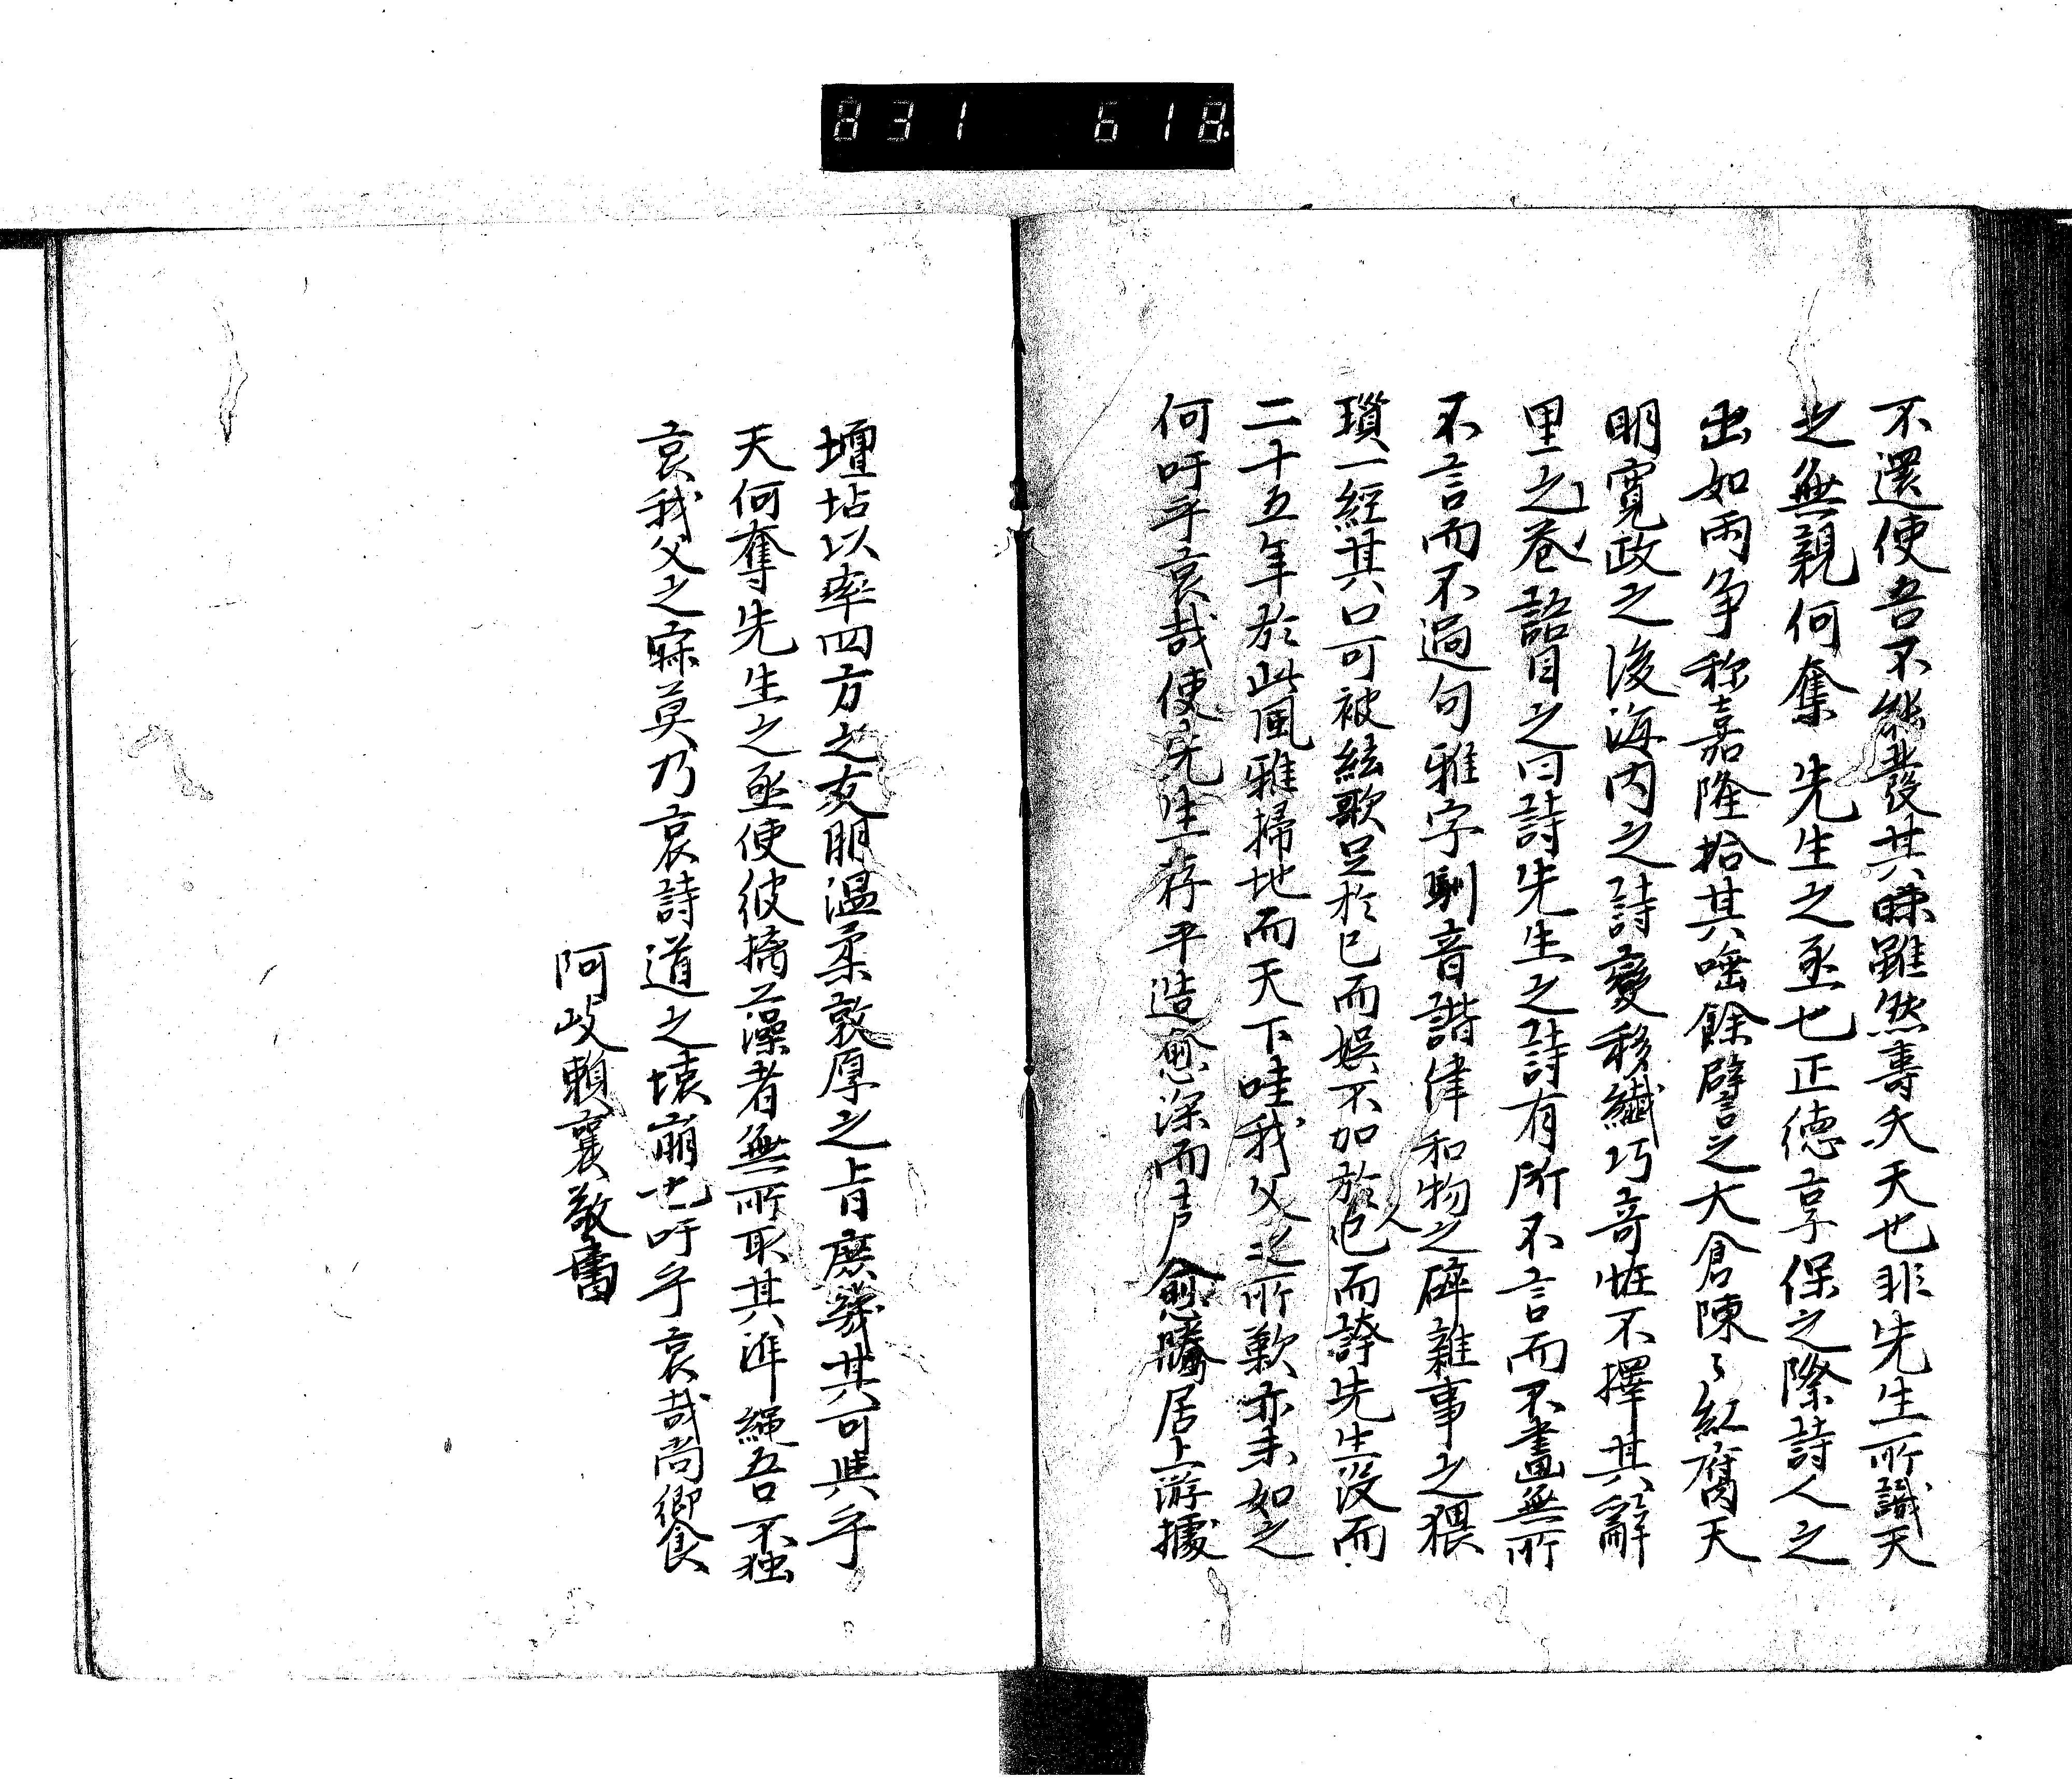 831 618
不還使吾不能發其昧雖然壽夭天也非先生所識天
之無親何奪先生之亟也正德享保之際詩人之
出如雨争称嘉隆拾其唾餘譬之大倉陳々紅腐天
明寛政之後海内之詩變移纎巧奇怪不擇其辭
里之巷詔目之曰詩先生之詩有所不言而不盡無所
不言而不過句雅字馴音諧律和物之碎雜事之猥
瑣一經其口可被絃歌足於己而娯不加於人而誇先生没而
二十五年於此風雅掃地而天下哇我父之所歎亦未如之
何吁乎哀哉使先生存乎造愈深而声愈騰居上游據
壇坫以率四方之友朋温柔敦厚之旨庶幾其可興乎
天何奪先生之亟使彼摛藻者無所取其準繩吾不独
哀我父之寂莫乃哀詩道之壊崩也吁乎哀哉尚饗
阿岐頼襄敬書